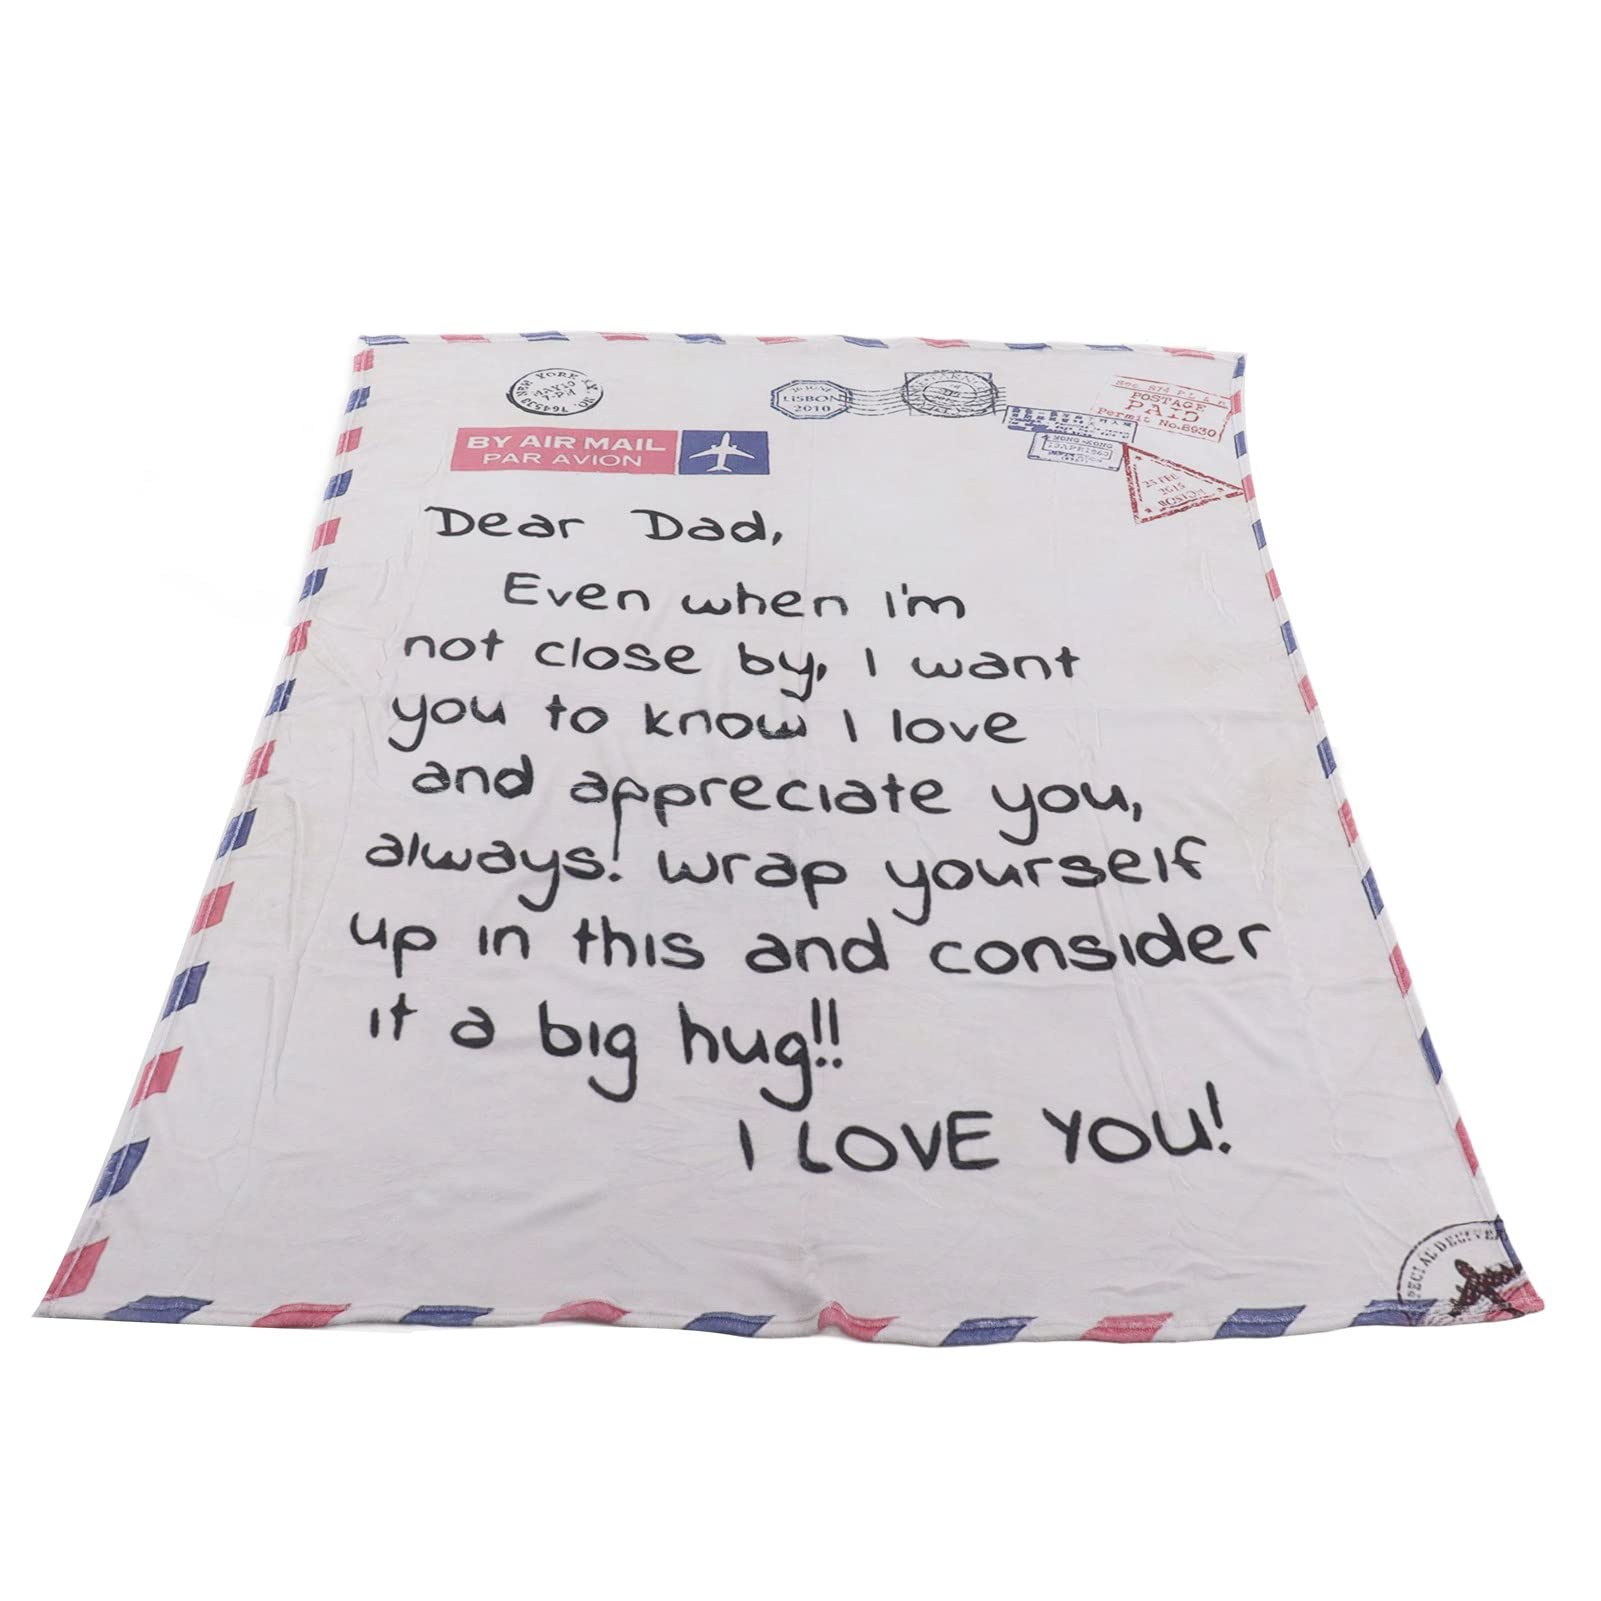 NEW YORK, N.Y.
NO. 764533
LISBON
2010
POSTAGE
PAID
Permit No.8930
BY AIR MAIL
PAR AVION
HONG KONG
2015
BOSTON
Dear Dad,
Even when I'm
not close by, I want
you to know I love
and appreciate you,
always! wrap yourself
up in this and consider
it a big hug!!
I LOVE YOU!